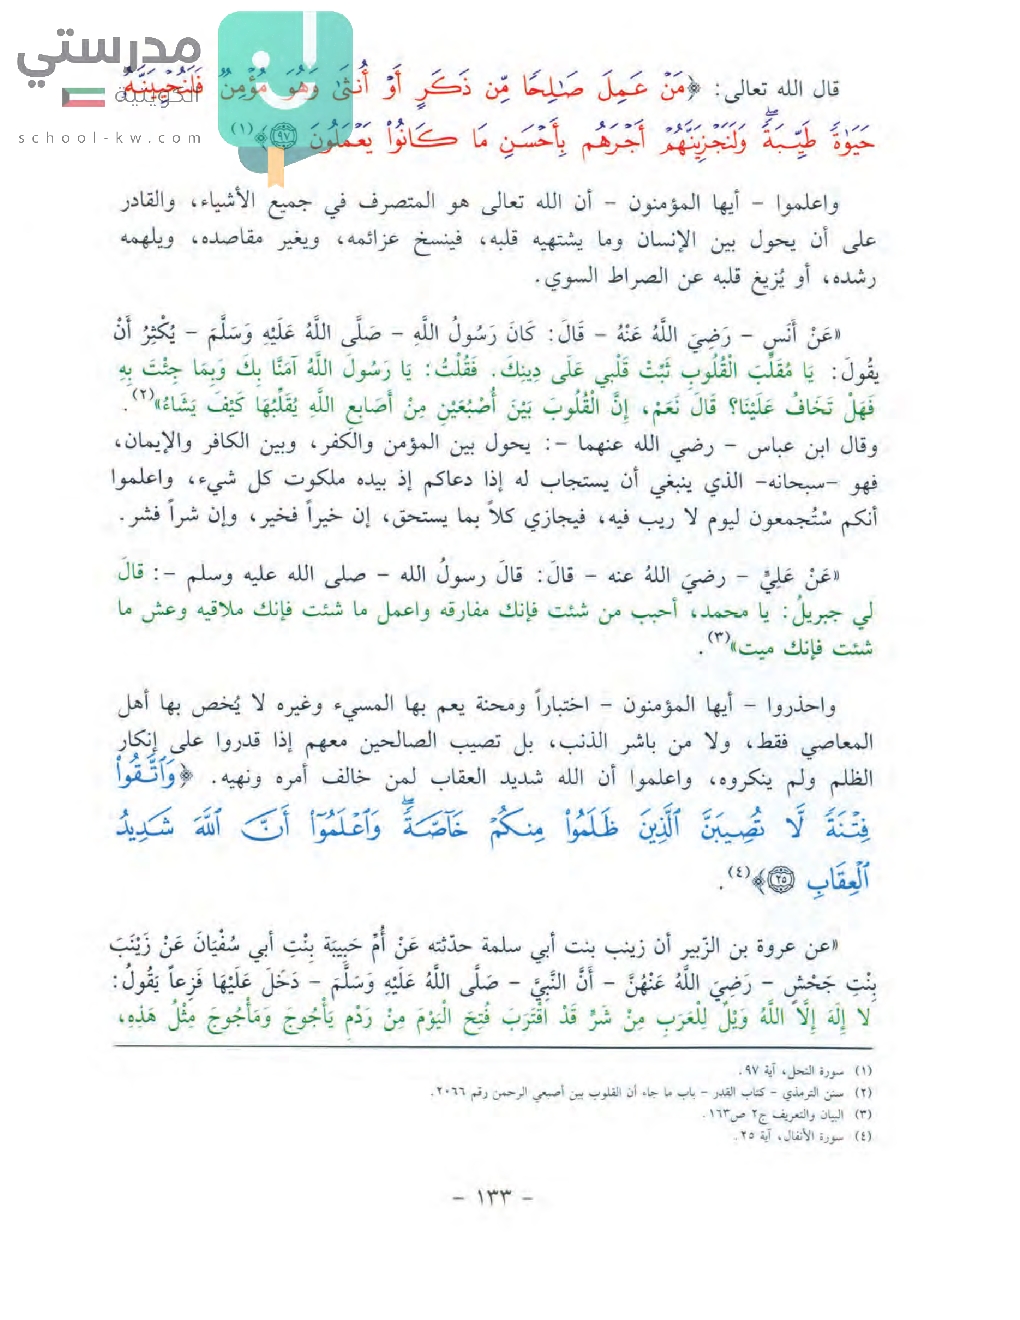 مدرستي
الكويتية
school-kw.com
قال الله تعالى: ﴿مَنْ عَمِلَ صَٰلِحًا مِّن ذَكَرٍ أَوْ أُنثَىٰ وَهُوَ مُؤْمِنٌ فَلَنُحْيِيَنَّهُۥ
حَيَوٰةً طَيِّبَةً ۖ وَلَنَجْزِيَنَّهُمْ أَجْرَهُم بِأَحْسَنِ مَا كَانُوا۟ يَعْمَلُونَ ﴿٩٧﴾﴾(١)
واعلموا – أيها المؤمنون – أن الله تعالى هو المتصرف في جميع الأشياء، والقادر
على أن يحول بين الإنسان وما يشتهيه قلبه، فينسخ عزائمه، ويغير مقاصده، ويلهمه
رشده، أو يُزيغ قلبه عن الصراط السوي.
«عَنْ أَنَسٍ – رَضِيَ اللَّهُ عَنْهُ – قَالَ: كَانَ رَسُولُ اللَّهِ – صَلَّى اللَّهُ عَلَيْهِ وَسَلَّمَ – يُكْثِرُ أَنْ
يقُولَ: يَا مُقَلِّبَ الْقُلُوبِ ثَبِّتْ قَلْبِي عَلَى دِينِكَ. فَقُلْتُ: يَا رَسُولَ اللَّهُ آمَنَّا بِكَ وَبِمَا جِئْتَ بِهِ
فَهَلْ تَخَافُ عَلَيْنَا؟ قَالَ نَعَمْ، إِنَّ الْقُلُوبَ بَيْنَ أُصْبُعَيْنِ مِنْ أَصَابِعِ اللَّهِ يُقَلِّبُهَا كَيْفَ يَشَاءُ»(٢).
وقال ابن عباس – رضي الله عنهما –: يحول بين المؤمن والكفر، وبين الكافر والإيمان،
فهو –سبحانه– الذي ينبغي أن يستجاب له إذا دعاكم إذ بيده ملكوت كل شيء، واعلموا
أنكم سْتُجمعون ليوم لا ريب فيه، فيجازي كلاً بما يستحق، إن خيراً فخير، وإن شراً فشر.
«عَنْ عَلِيٍّ – رضيَ اللهُ عنه – قالَ: قالَ رسولُ الله – صلى الله عليه وسلم –: قالَ
لي جبريلُ: يا محمد، أحبب من شئت فإنك مفارقه واعمل ما شئت فإنك ملاقيه وعش ما
شئت فإنك ميت»(٣).
واحذروا – أيها المؤمنون – اختباراً ومحنة يعم بها المسيء وغيره لا يُخص بها أهل
المعاصي فقط، ولا من باشر الذنب، بل تصيب الصالحين معهم إذا قدروا على إنكار
الظلم ولم ينكروه، واعلموا أن الله شديد العقاب لمن خالف أمره ونهيه. ﴿وَٱتَّقُوا۟
فِتْنَةً لَّا تُصِيبَنَّ ٱلَّذِينَ ظَلَمُوا۟ مِنكُمْ خَآصَّةً ۖ وَٱعْلَمُوٓا۟ أَنَّ ٱللَّهَ شَدِيدُ
ٱلْعِقَابِ ﴿٢٥﴾﴾(٤).
«عن عروة بن الزّبير أن زينب بنت أبي سلمة حدّثته عَنْ أُمِّ حَبِيبَةَ بِنْتِ أبي سُفْيَانَ عَنْ زَيْنَبَ
بِنْتِ جَحْشٍ – رَضِيَ اللَّهُ عَنْهُنَّ – أَنَّ النَّبِيَّ – صَلَّى اللَّهُ عَلَيْهِ وَسَلَّمَ – دَخَلَ عَلَيْهَا فَزِعاً يَقُولُ:
لا إِلَهَ إِلَّا اللَّهُ وَيْلٌ لِلْعَرَبِ مِنْ شَرٍّ قَدْ اقْتَرَبَ فُتِحَ الْيَوْمَ مِنْ رَدْمِ يَأْجُوجَ وَمَأْجُوجَ مِثْلُ هَذِهِ،
(١) سورة النحل، آية ٩٧.
(٢) سنن الترمذي – كتاب القدر – باب ما جاء أن القلوب بين أصبعي الرحمن رقم ٢٠٦٦.
(٣) البيان والتعريف ج٢ ص١٦٣.
(٤) سورة الأنفال، آية ٢٥.
– ١٣٣ –